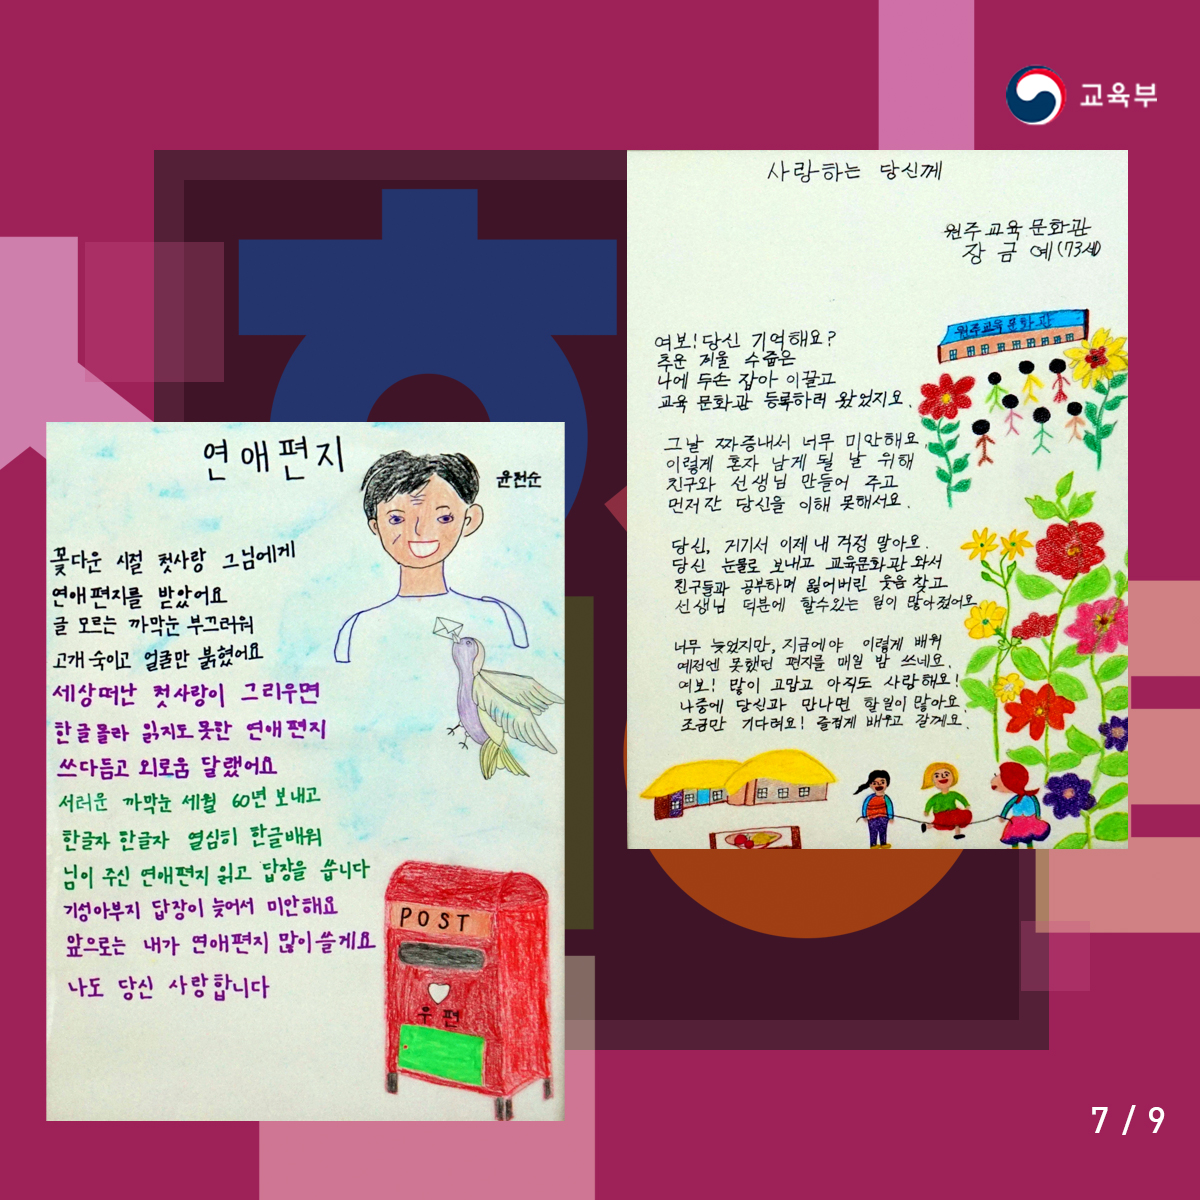 교육부
연애편지
윤천순
꽃다운 시절 첫사랑 그님에게
연애편지를 받았어요
글 모르는 까막눈 부끄러워
고개 숙이고 얼굴만 붉혔어요
세상떠난 첫사랑이 그리우면
한글몰라 읽지도 못한 연애편지
쓰다듬고 외로움 달랬어요
서러운 까막눈 세월 60년 보내고
한글자 한글자 열심히 한글배워
님이 주신 연애편지 읽고 답장을 씁니다
기성아부지 답장이 늦어서 미안해요
앞으로는 내가 연애편지 많이쓸게요
나도 당신 사랑합니다
POST
우편
사랑하는 당신께
원주교육문화관
장금예(73세)
여보! 당신 기억해요?
추운 겨울 수줍은
나에 두손 잡아 이끌고
교육 문화관 등록하러 왔었지요.
그날 짜증내서 너무 미안해요.
이렇게 혼자 남게 될 날 위해
친구와 선생님 만들어 주고
먼저간 당신을 이해 못해서요.
당신, 거기서 이제 내 걱정 말아요.
당신 눈물로 보내고 교육문화관 와서
친구들과 공부하며 잃어버린 웃음 찾고
선생님 덕분에 할수있는 일이 많아졌어요
너무 늦었지만, 지금에야 이렇게 배워
예전엔 못했던 편지를 매일 밤 쓰네요.
여보! 많이 고맙고 아직도 사랑해요!
나중에 당신과 만나면 할일이 많아요.
조금만 기다려요! 즐겁게 배우고 갈께요.
원주교육문화관
7 / 9